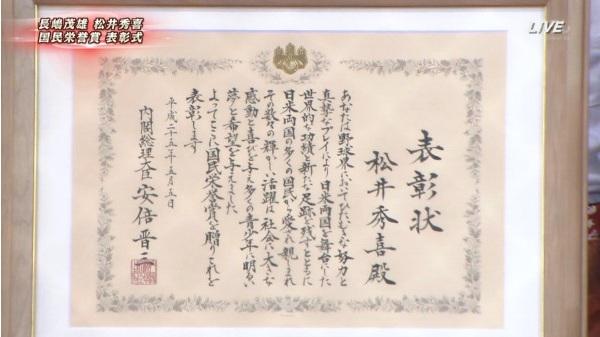 長嶋茂雄 松井秀喜
国民栄誉賞 表彰式
LIVE
表彰状
松井秀喜殿
あなたは野球界においてひたむきな努力と
真摯なプレイにより日米両国を舞台にした
世界的な功績と新たな足跡を残すとともに
日米両国の多くの国民から愛され親しまれ
その数々の輝かしい活躍は社会に大きな
感動と喜びを与え多くの青少年に明るい
夢と希望を与えました
よってここに国民栄誉賞を贈りこれを
表彰します
平成二十五年五月五日
内閣総理大臣 安倍晋三